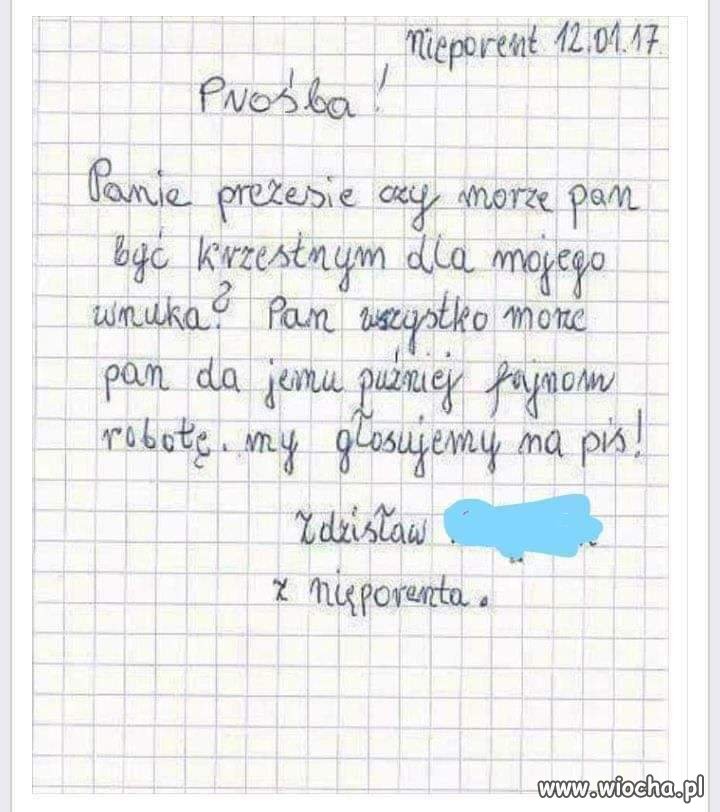 nieporent 12.01.17
Prośba!
Panie prezesie czy morze pan
być krzestnym dla mojego
wnuka? Pan wszystko morze
pan da jemu puźniej fajnom
robotę. my głosujemy na pis!
Zdzisław
z nięporenta.
www.wiocha.pl